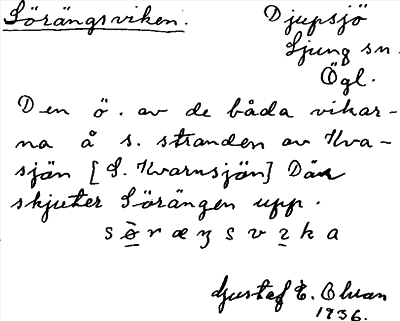 Sörängsviken. Djupsjö
Ljung sn.
Ögl.
Den ö. av de båda vikar-
na å s. stranden av Kva-
sjön [S. Kvarnsjön] Där
skjuter Sörängen upp.
Gustaf E. Olsson
1936.